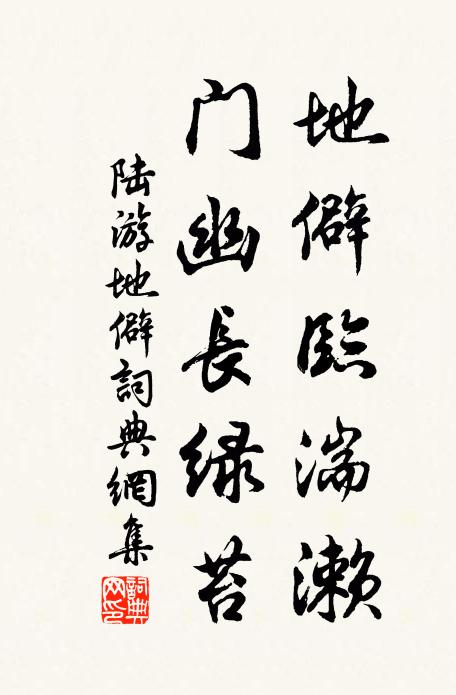 地僻臨湍瀨
门幽長绿苔
陆游地僻詞典網集
詞典网印